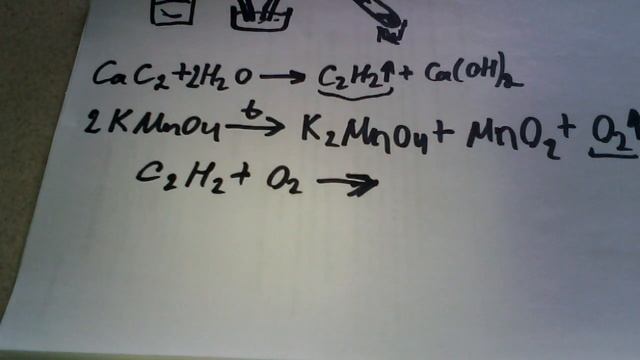 CaC2+2H2O → C2H2↑ + Ca(OH)2
2KMnO4 t→ K2MnO4 + MnO2 + O2↑
C2H2 + O2 →